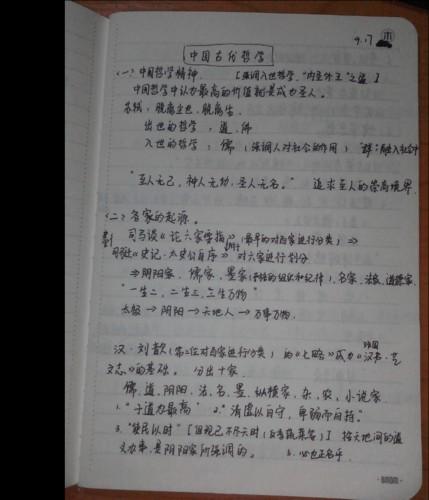 9.17
中国古代哲学
(一)中国哲学精神. [强调入世哲学."内圣外王"之道]
中国哲学中认为最高的价值就是成为圣人。
苏轼:脱离尘世.脱离生
出世的哲学:道.佛
入世的哲学:儒(强调人对社会的作用) 群:融入社会中
"至人无己,神人无功,圣人无名。" 追求至人的崇高境界.
(二)各家的起源。
司马谈《论六家要指》(最早的对百家进行分类)⇒
司马迁《史记·太史公自序》对六家进行划分
⇒阴阳家.儒家.墨家(严格的组织和纪律).名家.法家.道德家.
"一生二,二生三,三生万物"
太极→阴阳→天地人→万事万物.
汉·刘歆(第二位对百家进行分类)的《七略》成为《汉书·艺
班固
文志》的基础。分出十家.
儒,道,阴阳,法,名,墨,纵横家,杂,农,小说家
1."于道为最高" 2."清虚以自守,卑弱而自持。"
3."使民以时" 不尽天时 按天地间的道
义办事,是阴阳家所强调的。 5.必也正名乎.